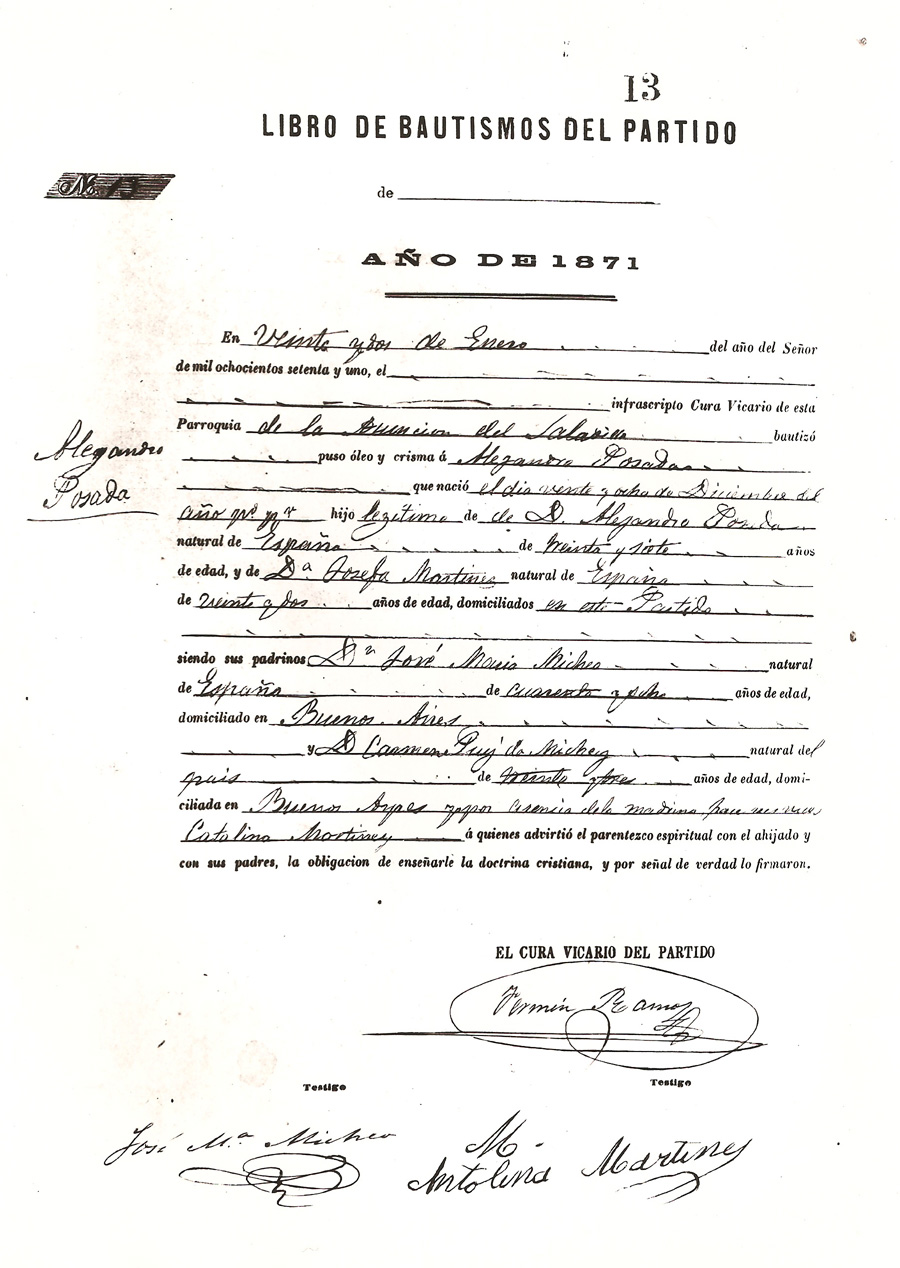 13
LIBRO DE BAUTISMOS DEL PARTIDO
No. 13
de
AÑO DE 1871
En Veinte y dos de Enero del año del Señor
de mil ochocientos setenta y uno, el
infrascripto Cura Vicario de esta
Parroquia de la Asuncion del Saladillo bautizó
Alejandro
Posada
puso óleo y crisma á Alejandro Posada
que nació el dia veinte y ocho de Diciembre del
año hijo legitimo de de D. Alejandro Posada
natural de España de treinta y siete años
de edad, y de Da Josefa Martines natural de España
de veinte y dos años de edad, domiciliados en este Partido
siendo sus padrinos Dn José Maria Micheo natural
de España de cuarenta y ocho años de edad,
domiciliado en Buenos Aires
y D Carmen Puij de Micheo natural del
pais de años de edad, domi-
ciliada en Buenos Ayres y por ausencia dela madrina
Catalina Martinez á quienes advirtió el parentezco espiritual con el ahijado y
con sus padres, la obligacion de enseñarle la doctrina cristiana, y por señal de verdad lo firmaron.
EL CURA VICARIO DEL PARTIDO
Fermin Ramos
Testigo
Testigo
José Ma Micheo
M.
Antolina Martines